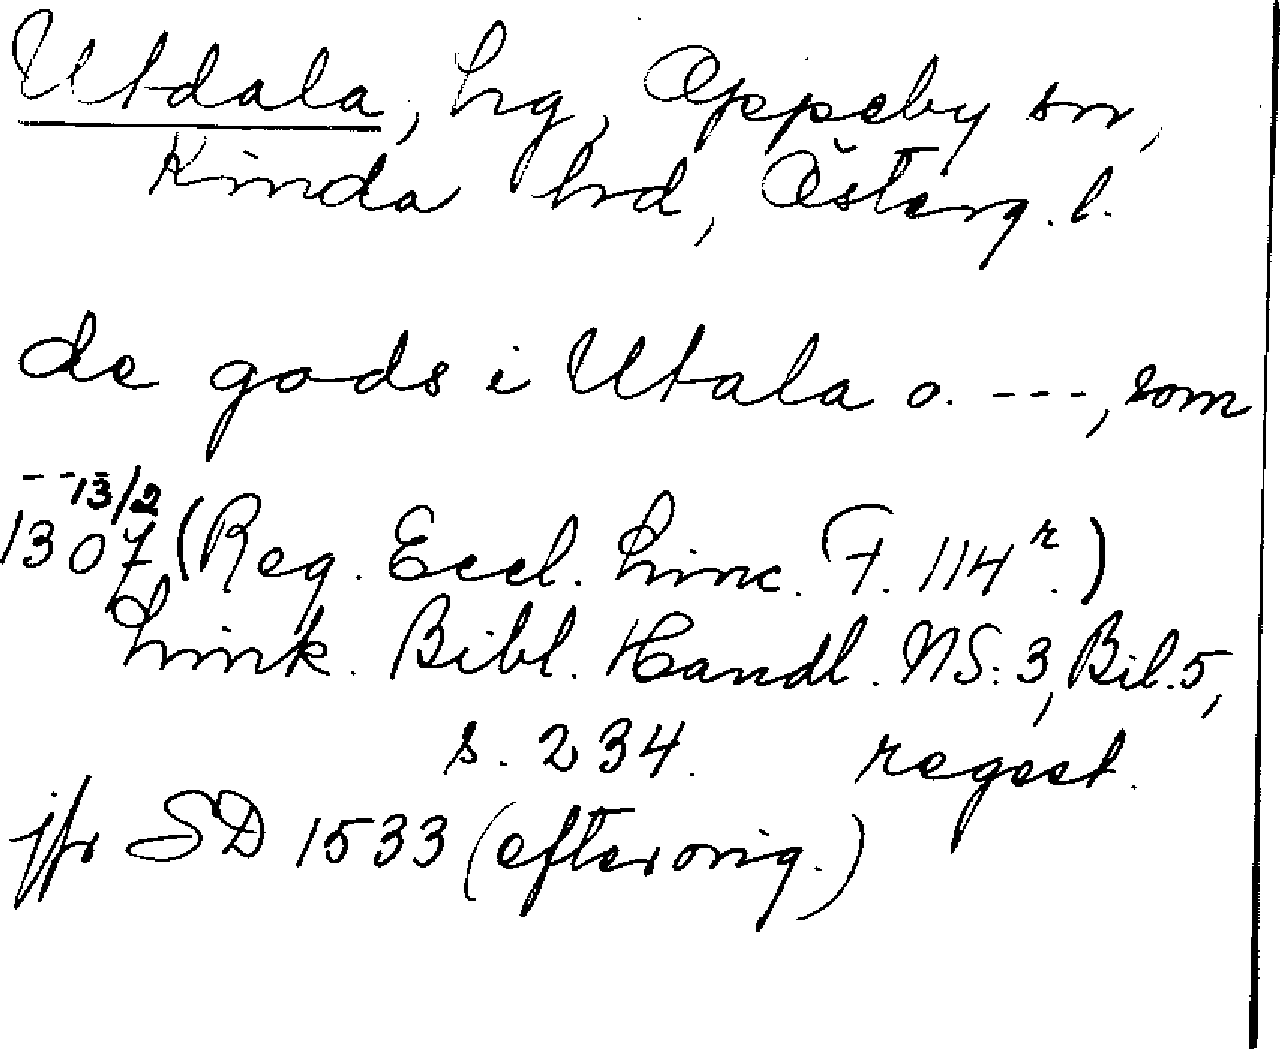 Utdala, hg, Oppeby sn,
Kinda hd, Österg. l.
de gods i Utala o. ---, som
-- 13/2
1307 (Reg. Eccl. Linc. F. 114r.)
Link. Bibl. Handl. NS: 3, Bil. 5,
s. 234. regest.
jfr SD 1533 (efter orig.)